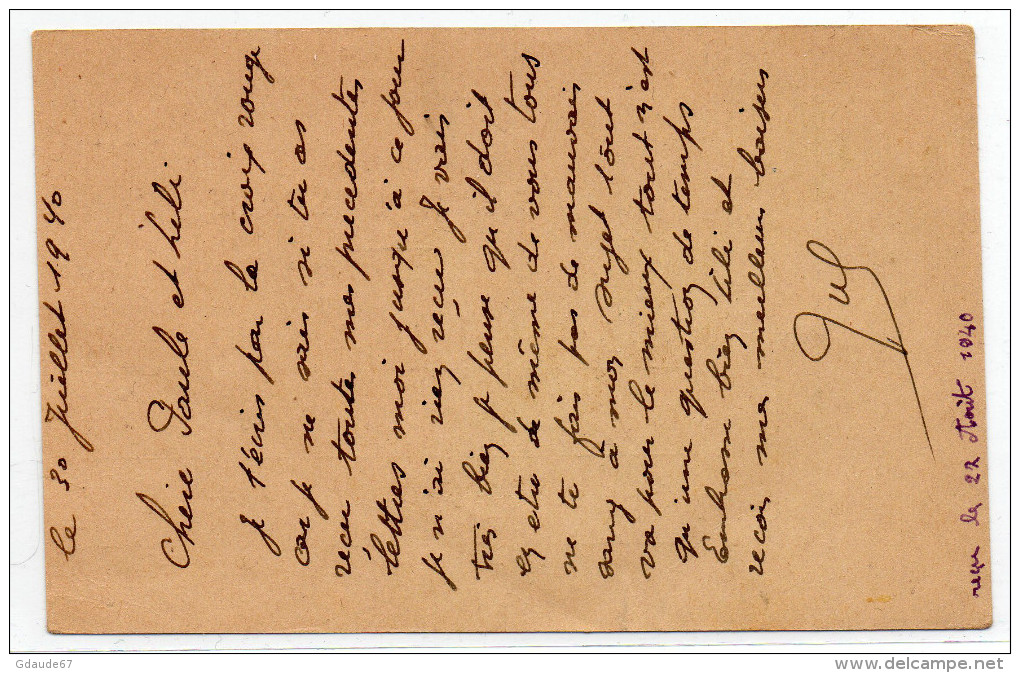 le 30 Juillet 1940
Chère Paule et Lili
Je t'écris par la croix rouge
car je ne sais si tu as
reçu toutes mes précédentes
lettres moi jusqu'à ce jour
je n'ai rien reçu Je vais
très bien je pense qu'il doit
en etre de même de vous tous
ne te fais pas de mauvais
sang à mon sujet tout
va pour le mieux tout n'est
qu'une question de temps
Embrasse bien Lili et
recois mes meilleurs baisers
reçue le 22 Août 1940
Gdaude67
www.delcampe.net